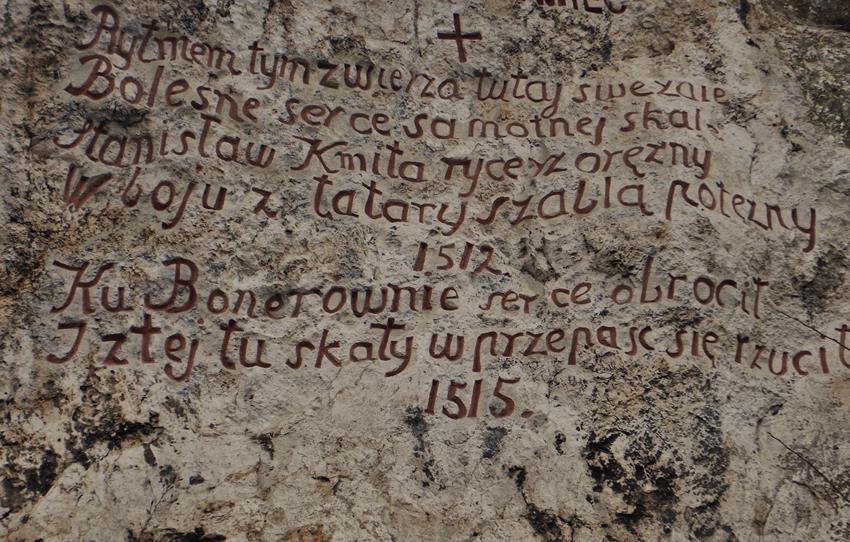 Rytmem tym zwierza tutaj swe żale
Bolesne serce samotnej skale
Stanisław Kmita rycerz orężny
W boju z tatary szablą potężny
1512.
Ku Bonerównie serce obrócił
I z tej tu skały w przepaść się rzucił
1515.